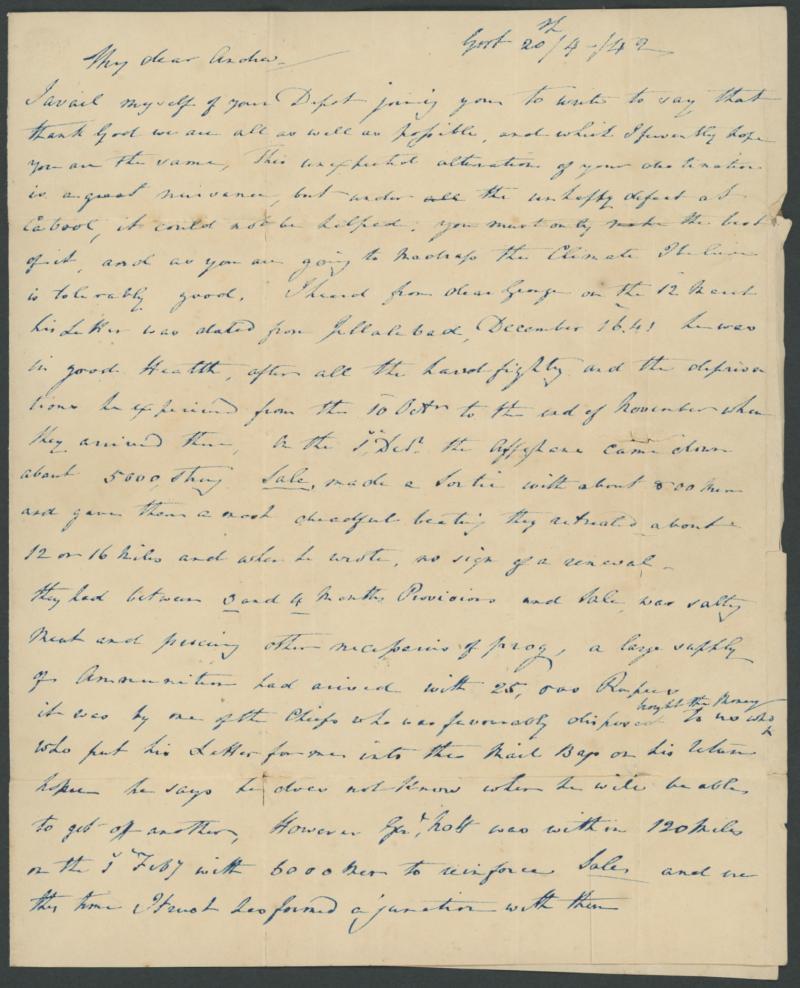 Gort 20th/4-/42
My dear Andrew
I avail myself of your Depot joining your to write to say that
thank God we are all as well as possible, and which I fervently hope
you are the same, This unexpected alteration of your destination
is a great nuisance, but under all the unhappy defeat at
Cabool, it could not be helped, you must only make the best
of it, and as you are going to Madrass the Climate I believe
is tolerably good. I heard from dear George on the 12 March
his Letter was dated from Jellalabad, December 16.41 he was
in good Health, after all the hard fighting and the depriva
tions he experienced from the 10 Octr to the end of November when
they arrived there, On the 1st Decr the Affghans came down
about 5000 strong Sale, made a Sortie with about 800 Men
and gave them a most dreadful beating they retreated about
12 or 16 Miles and when he wrote, no sign of a renewal
they had between 3 and 4 Months Provisions and Sale, was salting
Meat and procuring other necessaries of prog, a large supply
of Ammunition had arrived with 25,000 Rupees
it was by one of the Chiefs who was favourably disposed to us who
brought the Money
who put his Letter for me into the Mail Bag on his return
he says he does not know when he will be able
to get off another, However Genl, Nott was within 120 Miles
on the 1st Feby with 6000 Men to reinforce Sale and
this time I trust has formed a junction with them